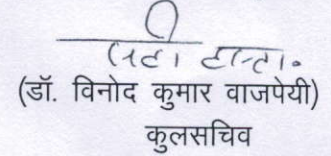 (डॉ. विनोद कुमार वाजपेयी)
कुलसचिव